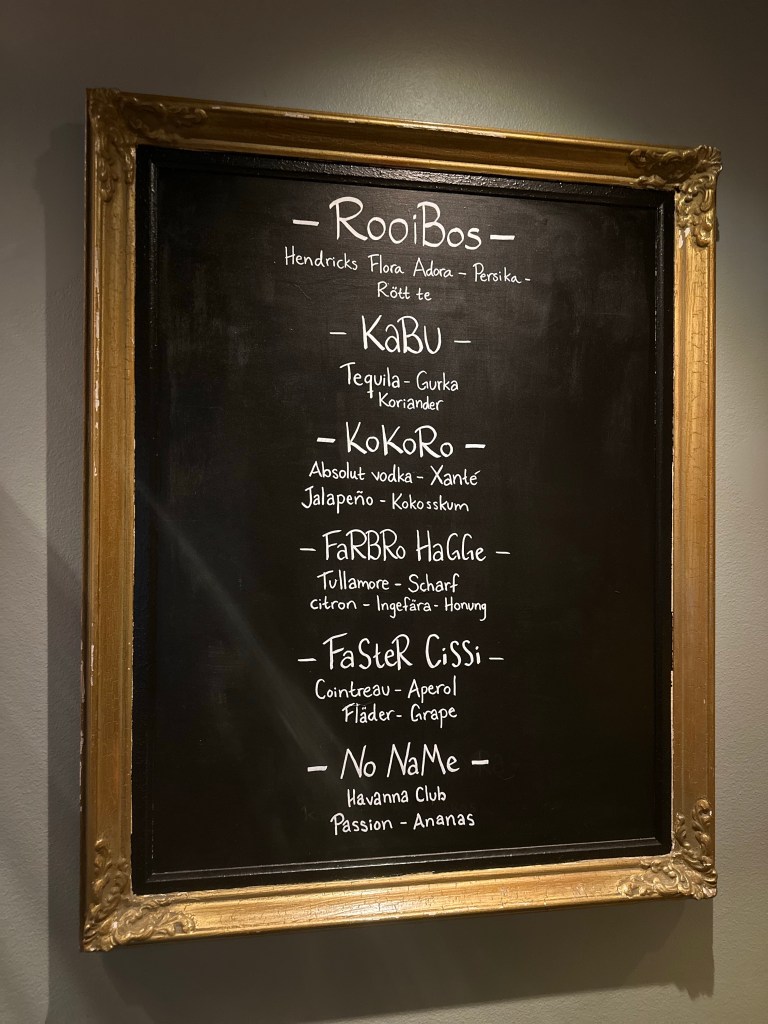 - RooiBos -
Hendricks Flora Adora - Persika -
Rött te
- KaBU -
Tequila - Gurka
Koriander
- KoKoRo -
Absolut vodka - Xanté
Jalapeño - Kokosskum
- FaRBRo HaGGe -
Tullamore - Scharf
citron - Ingefära - Honung
- FaSteR CiSSi -
Cointreau - Aperol
Fläder - Grape
- No NaMe -
Havanna Club
Passion - Ananas